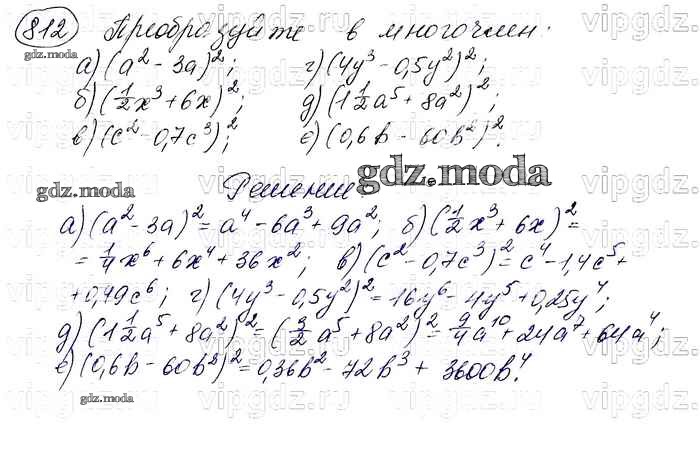 812 Преобразуйте в многочлен:
а) (a² - 3a)²; г) (4y³ - 0,5y²)²;
б) (1/2x³ + 6x)²; д) (1 1/2a⁵ + 8a²)²;
в) (c² - 0,7c³)²; е) (0,6b - 60b²)².
gdz.moda
gdz.moda
Решение:
а) (a² - 3a)² = a⁴ - 6a³ + 9a²; б) (1/2x³ + 6x)² =
= 1/4x⁶ + 6x⁴ + 36x²; в) (c² - 0,7c³)² = c⁴ - 1,4c⁵ +
+ 0,49c⁶; г) (4y³ - 0,5y²)² = 16y⁶ - 4y⁵ + 0,25y⁴;
д) (1 1/2a⁵ + 8a²)² = (3/2a⁵ + 8a²)² = 9/4a¹⁰ + 24a⁷ + 64a⁴;
е) (0,6b - 60b²)² = 0,36b² - 72b³ + 3600b⁴.
gdz.moda
gdz.moda